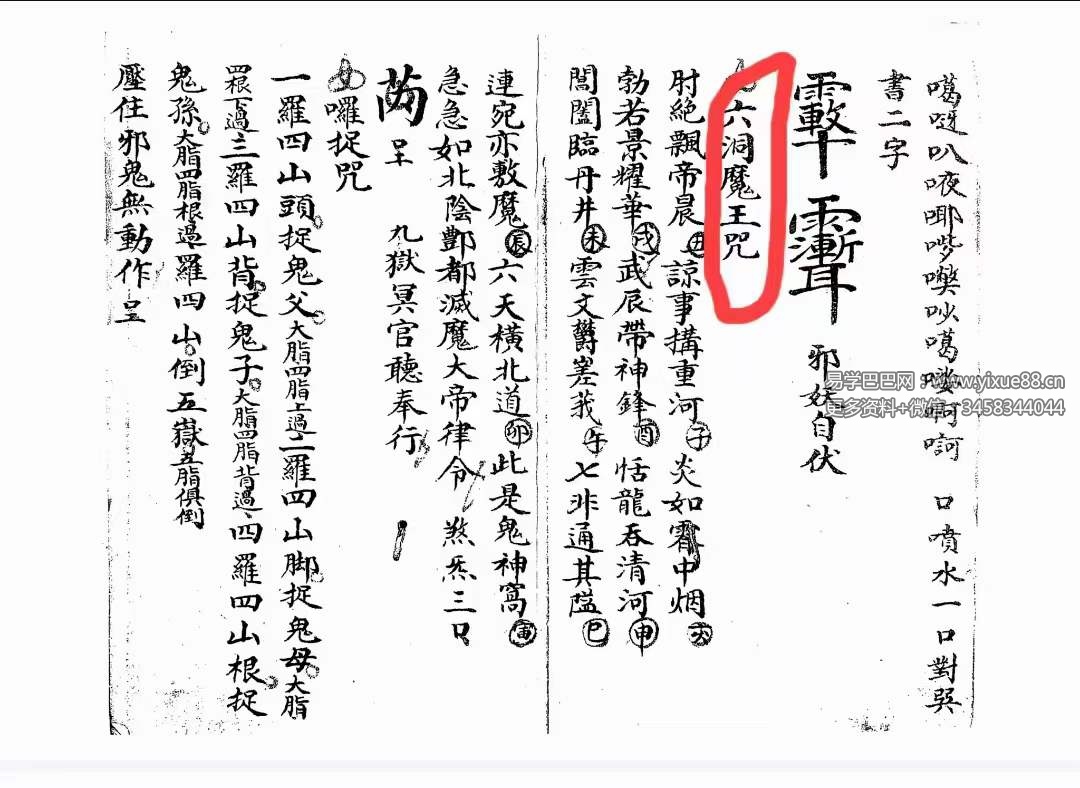 噶呀叭㖡唧嘧㘑吵噶嘙啊訶 口噴水一口對巽
書二字
邪妖自伏
六洞魔王咒
肘絕飄帝晨丑諒事搆重河子炎如霄中烟亥
勃若景耀華戌武辰帶神鋒酉恬龍吞清河申
閶闔臨丹井未雲文欝嵳莪午七非通其隘巳
連宛亦敷魔辰六天橫北道卯此是鬼神窩寅
急急如北陰酆都滅魔大帝律令 煞炁三口
九獄冥官聽奉行
囉捉咒
一羅四山頭捉鬼父大脂四脂上過二羅四山脚捉鬼母大脂
四根下過三羅四山背捉鬼子大脂四脂背過四羅四山根捉
鬼孫大脂四脂根過羅四山倒五嶽五脂俱倒
壓住邪鬼無動作
易学巴巴网：www.yixue88.cn
更多资料+微信：3458344044